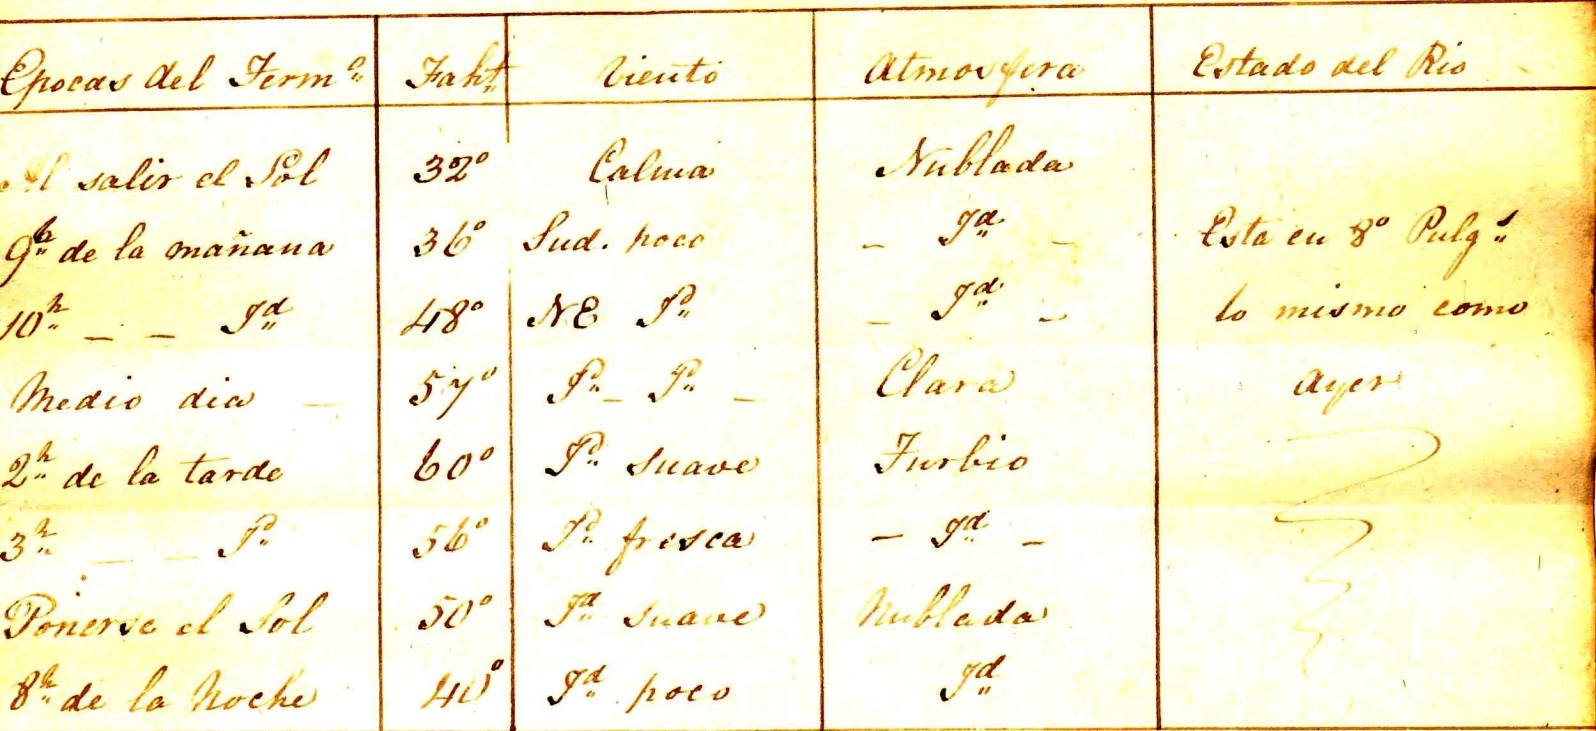 Epocas del Termº Faht Viento Atmosfera Estado del Rio
Al salir el Sol 32º Calma Nublada
9h de la mañana 36º Sud. poco _ Id _ Esta en 8º Pulgs
10h _ _ Id 48º NE Id _ Id _ lo mismo como
Medio dia _ 57º Id _ Id _ Clara Ayer
2h de la tarde 60º Id suave Turbio
3h _ _ Id 56º Id fresca _ Id _
Ponerse el Sol 50º Id suave Nublada
8h de la Noche 40º Id poco Id